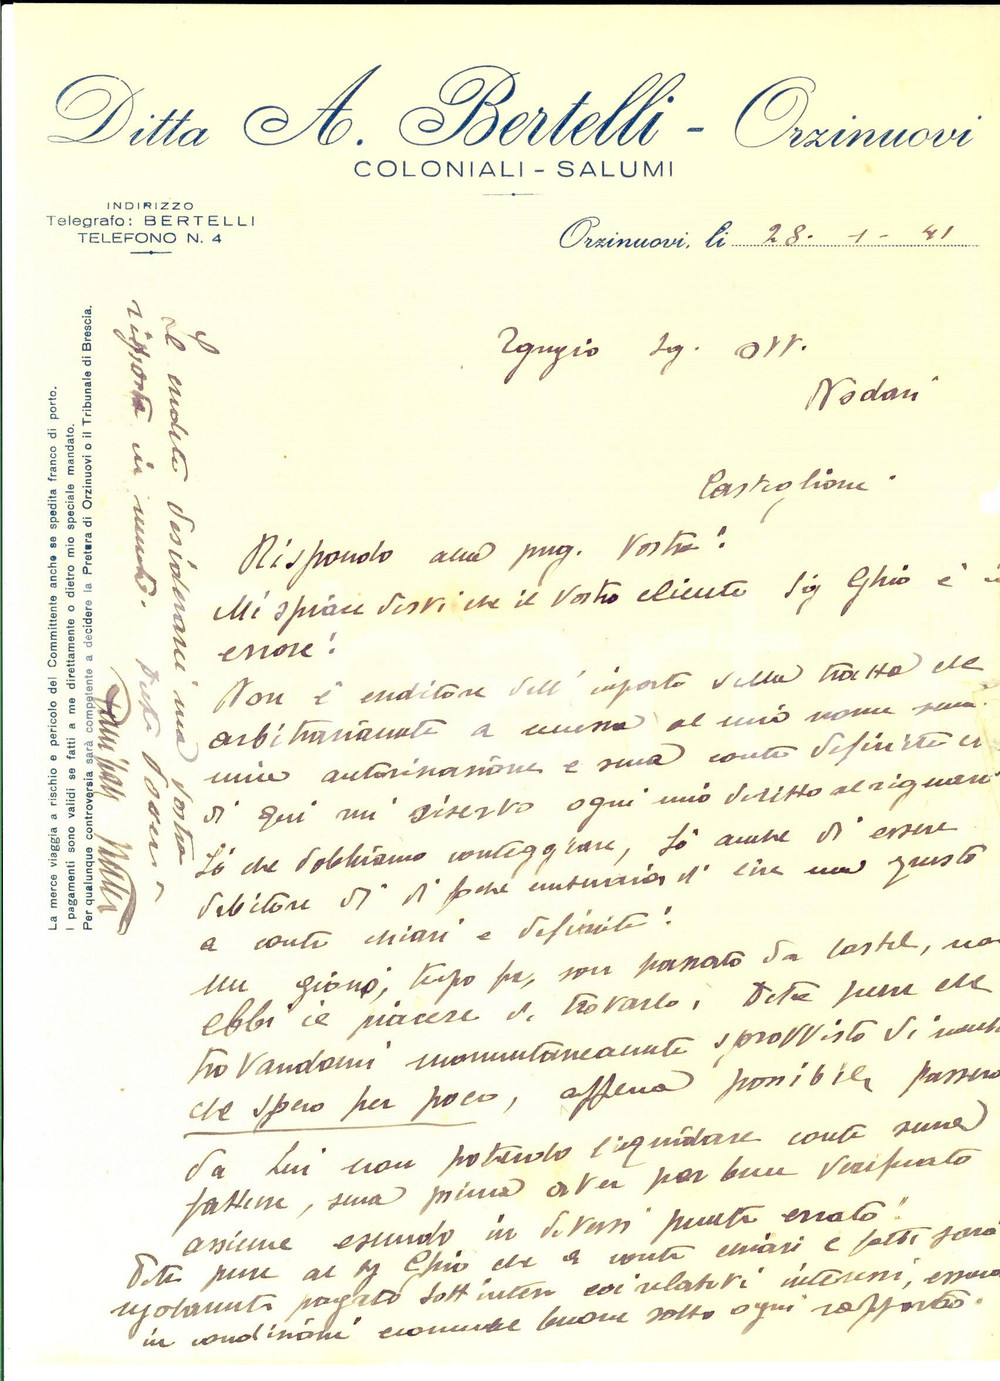 Ditta A. Bertelli - Orzinuovi
COLONIALI - SALUMI
INDIRIZZO
Telegrafo: BERTELLI
TELEFONO N. 4
Orzinuovi, li 28. -1- 41
Egregio Sg. Avv.
Nodari
Castiglione
Rispondo alla preg. Vostra!
Mi spiace dirvi che il Vostro cliente Sig Ghio è in
errore!
Non è creditore dell' importo della tratta che
arbitrariamente a emessa al mio nome senza
mia autorizzazione e senza conto definito
di qui mi riservo ogni mio diritto al riguardo
Sò che dobbiamo conteggiare, Sò anche di essere
debitore di di poche centinaia di lire ma questo
a conti chiari e definiti!
un giorno, tempo fa, son passato da Castel, non
ebbi il piacere di trovarlo. Dite pure che
trovandomi momentaneamente sprovvisto di
che spero per poco, appena possibile passerò
da lui non potendo liquidare conti senza
fatture, senza prima aver per bene verificato
assieme essendo in diversi punti errato!
Dite pure al Sg Ghio che a conti chiari e fatti sarà
regolarmente pagato coi relativi interessi, essendo
in condizioni buone sotto ogni rapporto.
Le credito desiderarci una Vostra
risposta in merito.
La merce viaggia a rischio e pericolo del Committente anche se spedita franco di porto.
I pagamenti sono validi se fatti a me direttamente o dietro mio speciale mandato.
Per qualunque controversia sarà competente a decidere la Pretura di Orzinuovi o il Tribunale di Brescia.